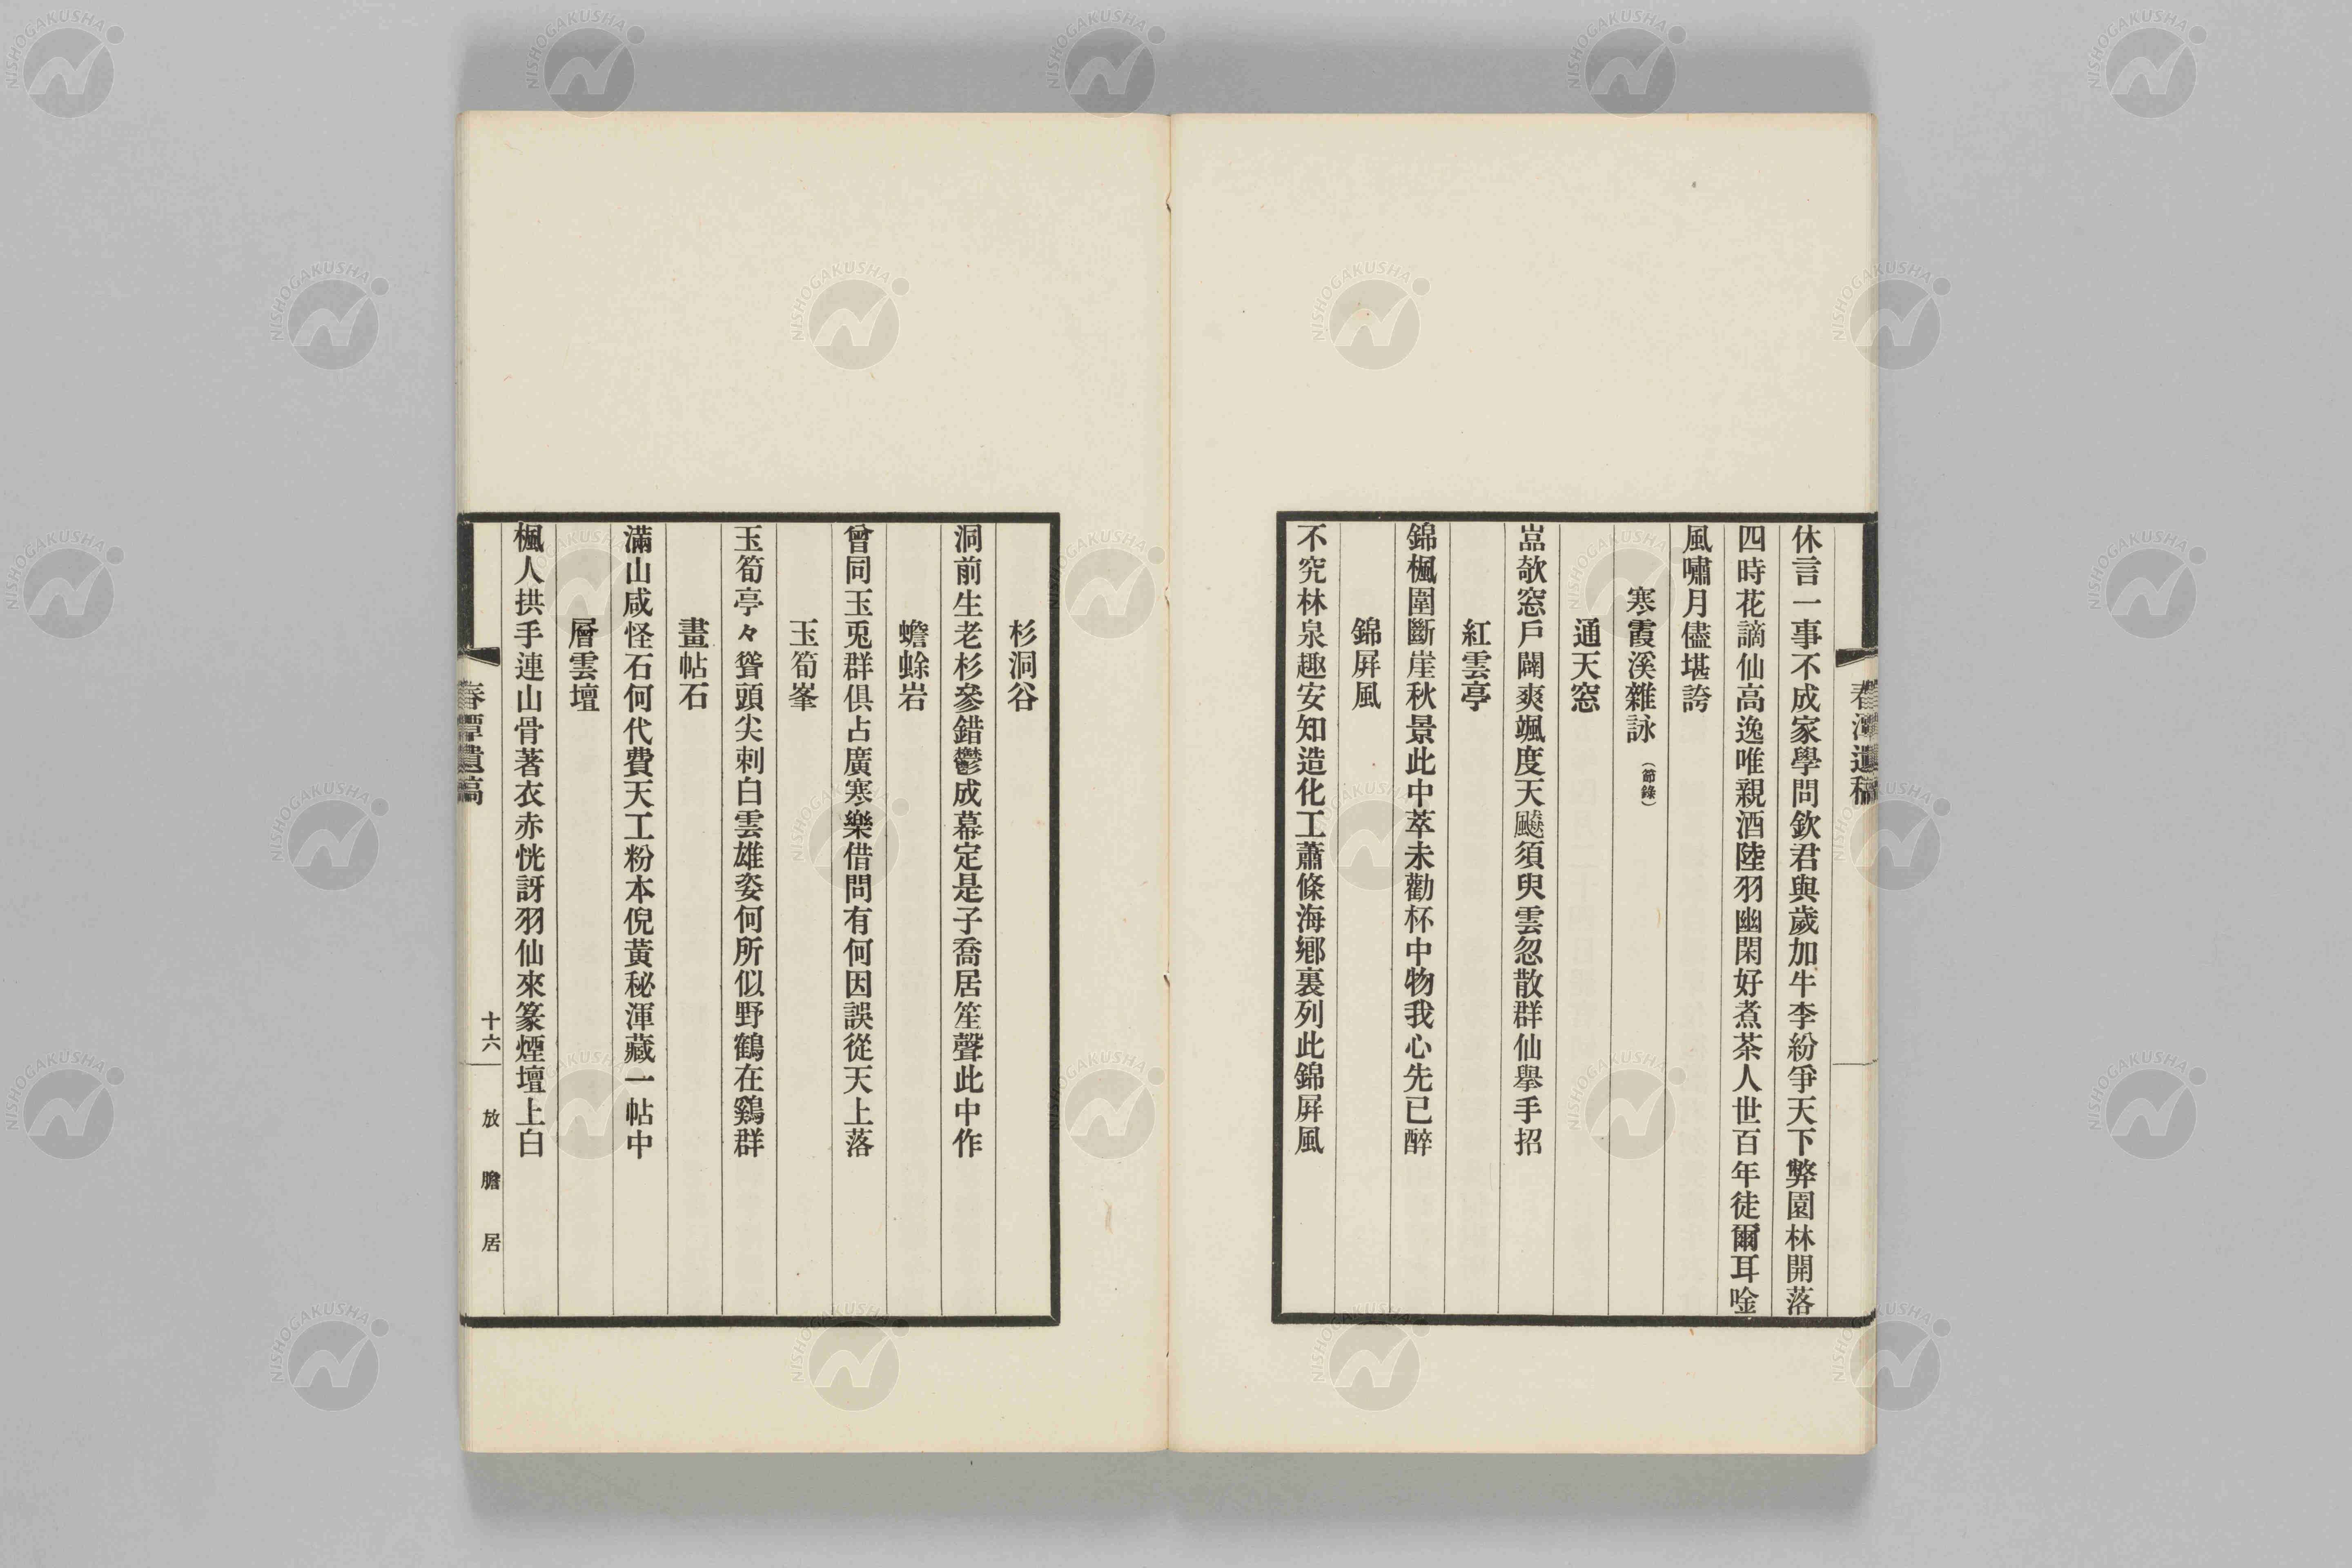 春潭遺稿
休言一事不成家學問欽君與歲加牛李紛爭天下弊園林開落
四時花謫仙高逸唯親酒陸羽幽閑好煮茶人世百年徒爾耳唫
風嘯月儘堪誇
寒霞溪雜詠（節錄）
通天窓
嵓欹窓戶闢爽颯度天飇須臾雲忽散群仙擧手招
紅雲亭
錦楓圍斷崖秋景此中萃未勸杯中物我心先已醉
錦屛風
不究林泉趣安知造化工蕭條海鄕裏列此錦屛風
杉洞谷
洞前生老杉參錯鬱成幕定是子喬居笙聲此中作
蟾蜍岩
曾同玉兎群俱占廣寒樂借問有何因誤從天上落
玉筍峯
玉筍亭々聳頭尖刺白雲雄姿何所似野鶴在鷄群
畫帖石
滿山咸怪石何代費天工粉本倪黃秘渾藏一帖中
層雲壇
楓人拱手連山骨著衣赤恍訝羽仙來篆煙壇上白
春潭遺稿
十六
放膽居
NISHOGAKUSHA